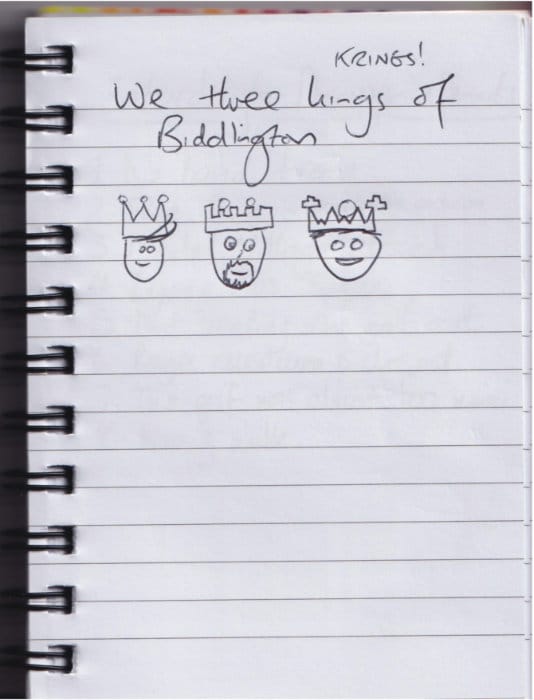 KRINGS!
We three kings of
Biddlington